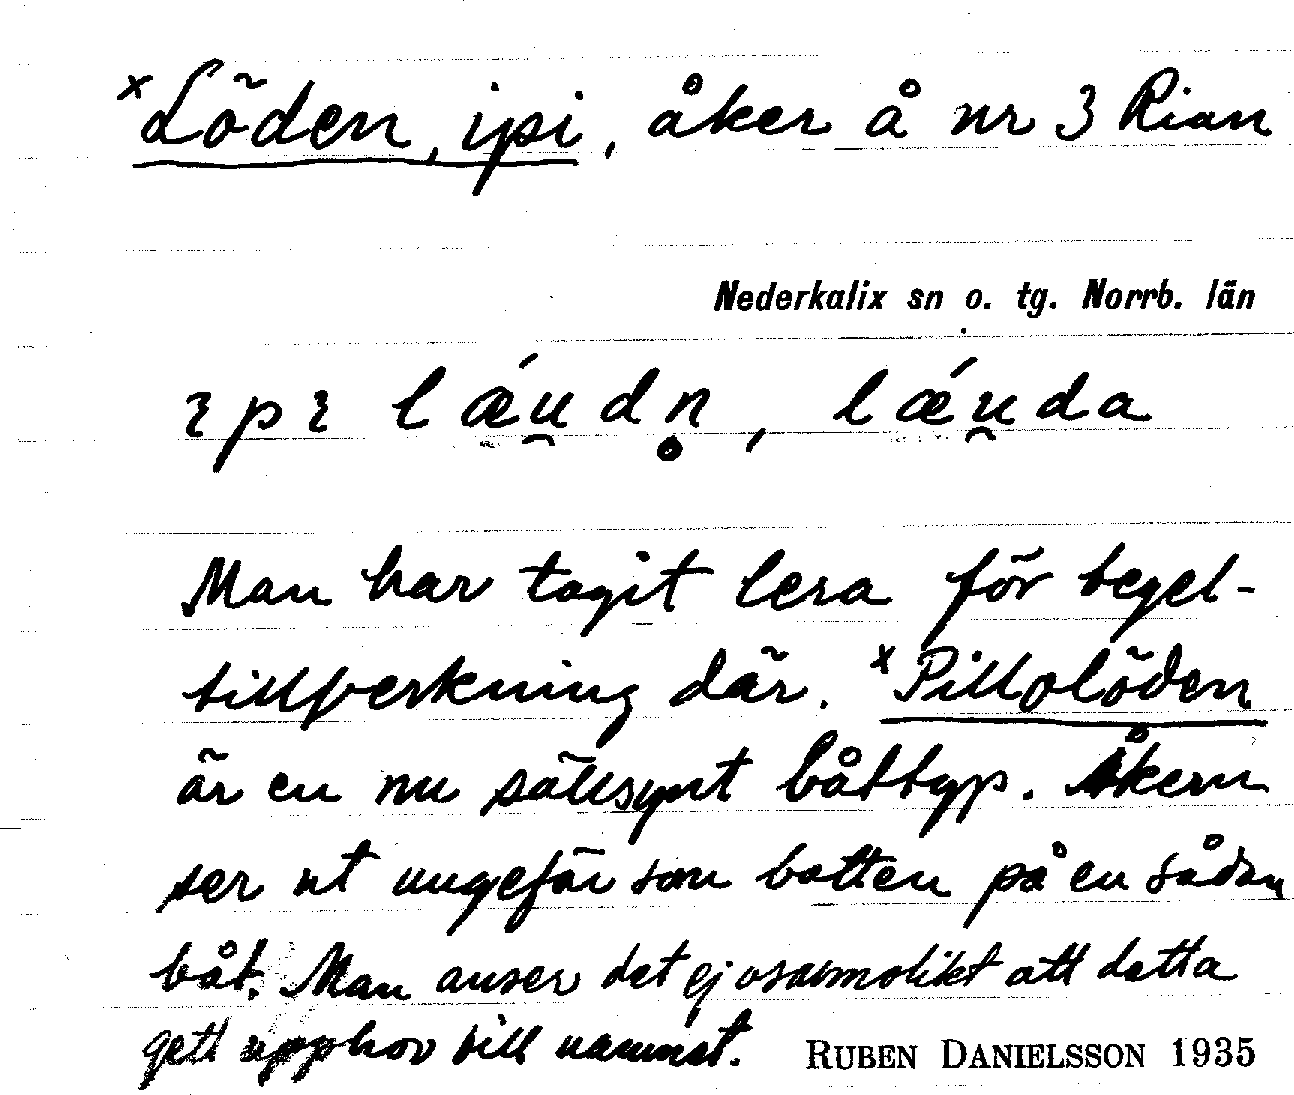 ×Löden, ipi, åker å nr 3 Rian
Nederkalix sn o. tg. Norrb. län
ɪpɪ lǽu̯dn̥, lǽu̯da
Man har tagit lera för tegel-
tillverkning där. ×Pillolöden
är en nu sällsynt båttyp. Åkern
ser ut ungefär som botten på en sådan
båt. Man anser det ej osannolikt att detta
gett upphov till namnet. RUBEN DANIELSSON 1935